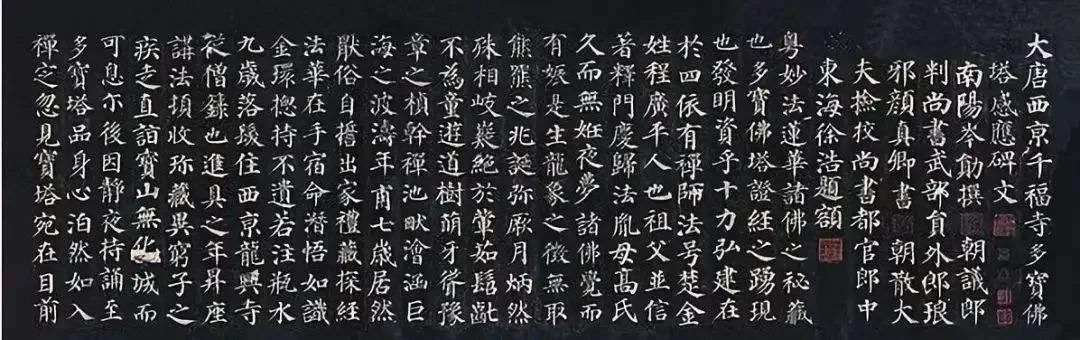 大唐西京千福寺多寶佛
塔感應碑文
南陽岑勛撰 朝議郎
判尚書武部員外郎琅
邪顏真卿書 朝散大
夫撿挍尚書都官郎中
東海徐浩題額
粵妙法蓮華諸佛之秘藏
也多寶佛塔證經之踴現
也發明資乎十力弘建在
於四依有禪師法号楚金
姓程廣平人也祖父並信
著釋門慶歸法胤母高氏
久而無妊夜夢諸佛覺而
有娠是生龍象之徵無取
熊羆之兆誕弥厥月炳然
殊相岐嶷絕於葷茹髫齔
不為童遊道樹萌牙聳豫
章之楨幹禪池畎澮涵巨
海之波濤年甫七歲居然
猒俗自誓出家禮藏探經
法華在手宿命潛悟如識
金環揔持不遺若注瓶水
九歲落髮住西京龍興寺
從僧籙也進具之年昇座
講法頓收弥藏異窮子之
疾走直詣寶山無化城而
可息尒後因靜夜持誦至
多寶塔品身心泊然如入
禪定忽見寶塔宛在目前